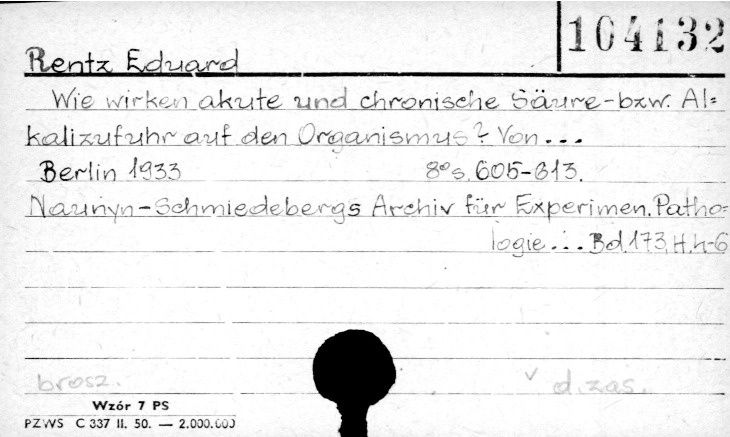 104132
Rentz Eduard
Wie wirken akute und chronische Säure-bzw. Al=
kalizufuhr auf den Organismus? Von...
Berlin 1933 8° s. 605-613.
Naunyn-Schmiedebergs Archiv für Experimen. Patho=
logie... Bd. 173, H. 4-6
brosz. d. zas.
Wzór 7 PS
PZWS C 337 II. 50. — 2.000.000